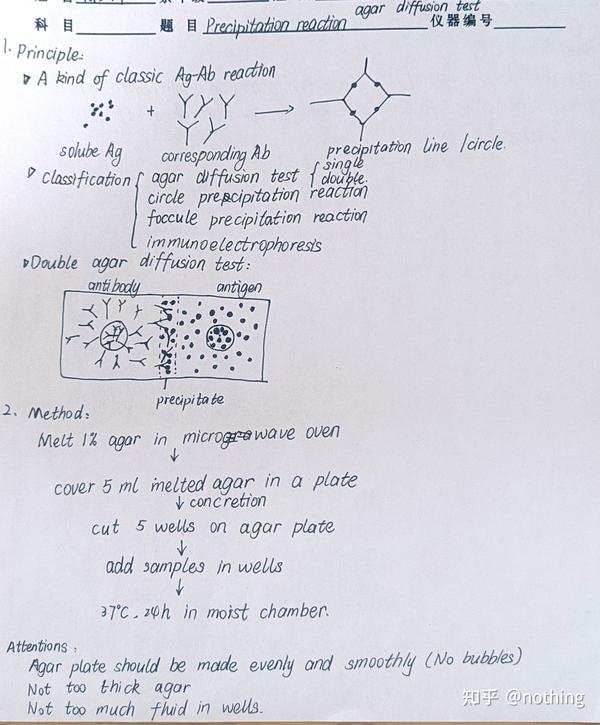 agar diffusion test
科 目 题 目 Precipitation reaction 仪器编号
1. Principle:
A kind of classic Ag-Ab reaction
+
solube Ag corresponding Ab precipitation line / circle.
classification agar diffusion test single
double.
circle precipitation reaction
foccule precipitation reaction
immunoelectrophoresis
Double agar diffusion test:
antibody antigen
precipitate
2. Method:
Melt 1% agar in microwave oven
↓
cover 5 ml melted agar in a plate
↓ concretion
cut 5 wells on agar plate
↓
add samples in wells
↓
37℃, 24h in moist chamber.
Attentions:
Agar plate should be made evenly and smoothly (No bubbles)
Not too thick agar
Not too much fluid in wells.
知乎 @nothing